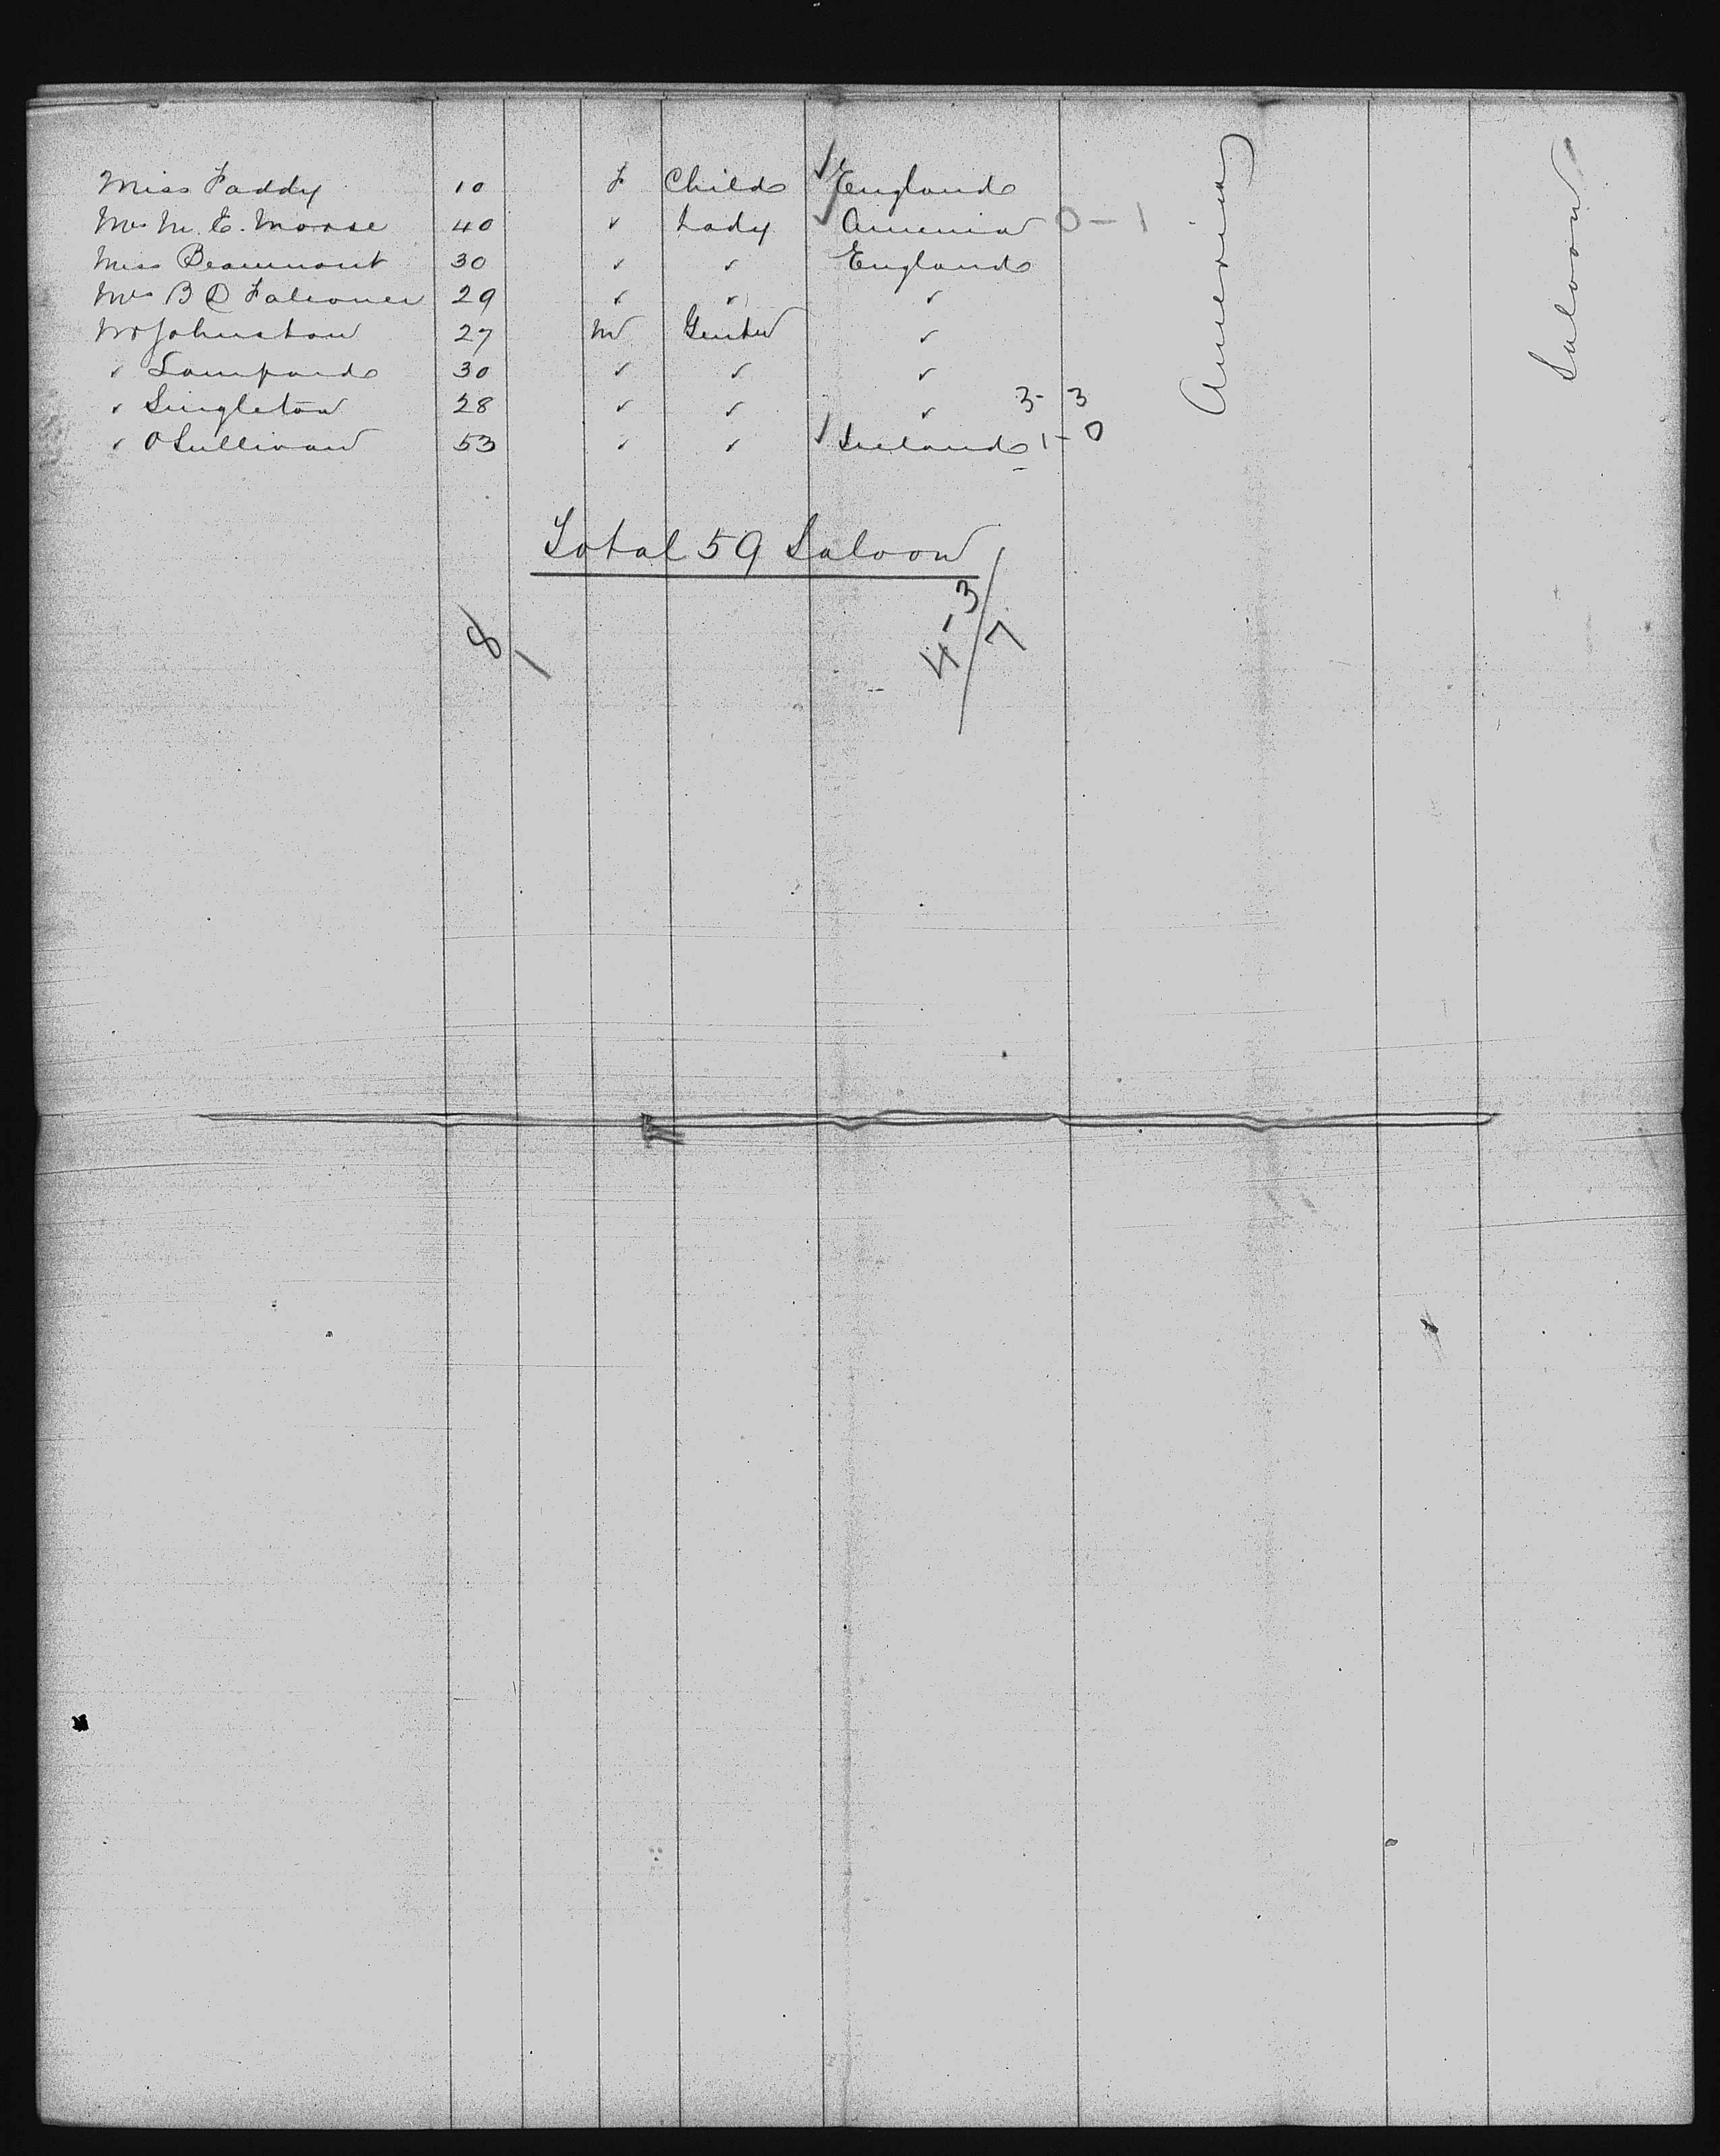 Miss Faddy 10 F Child England
Mrs M. E. Morse 40 " Lady America 0-1
Miss Beaumont 30 " " England
Mrs B D Falconer 29 " " "
Mr Johnston 27 M Gentn "
" Lampard 30 " " "
" Singleton 28 " " " 3-3
" O'Sullivan 53 " " Ireland 1-0
America
Saloon
Total 59 Saloon
8/1
4-3/7